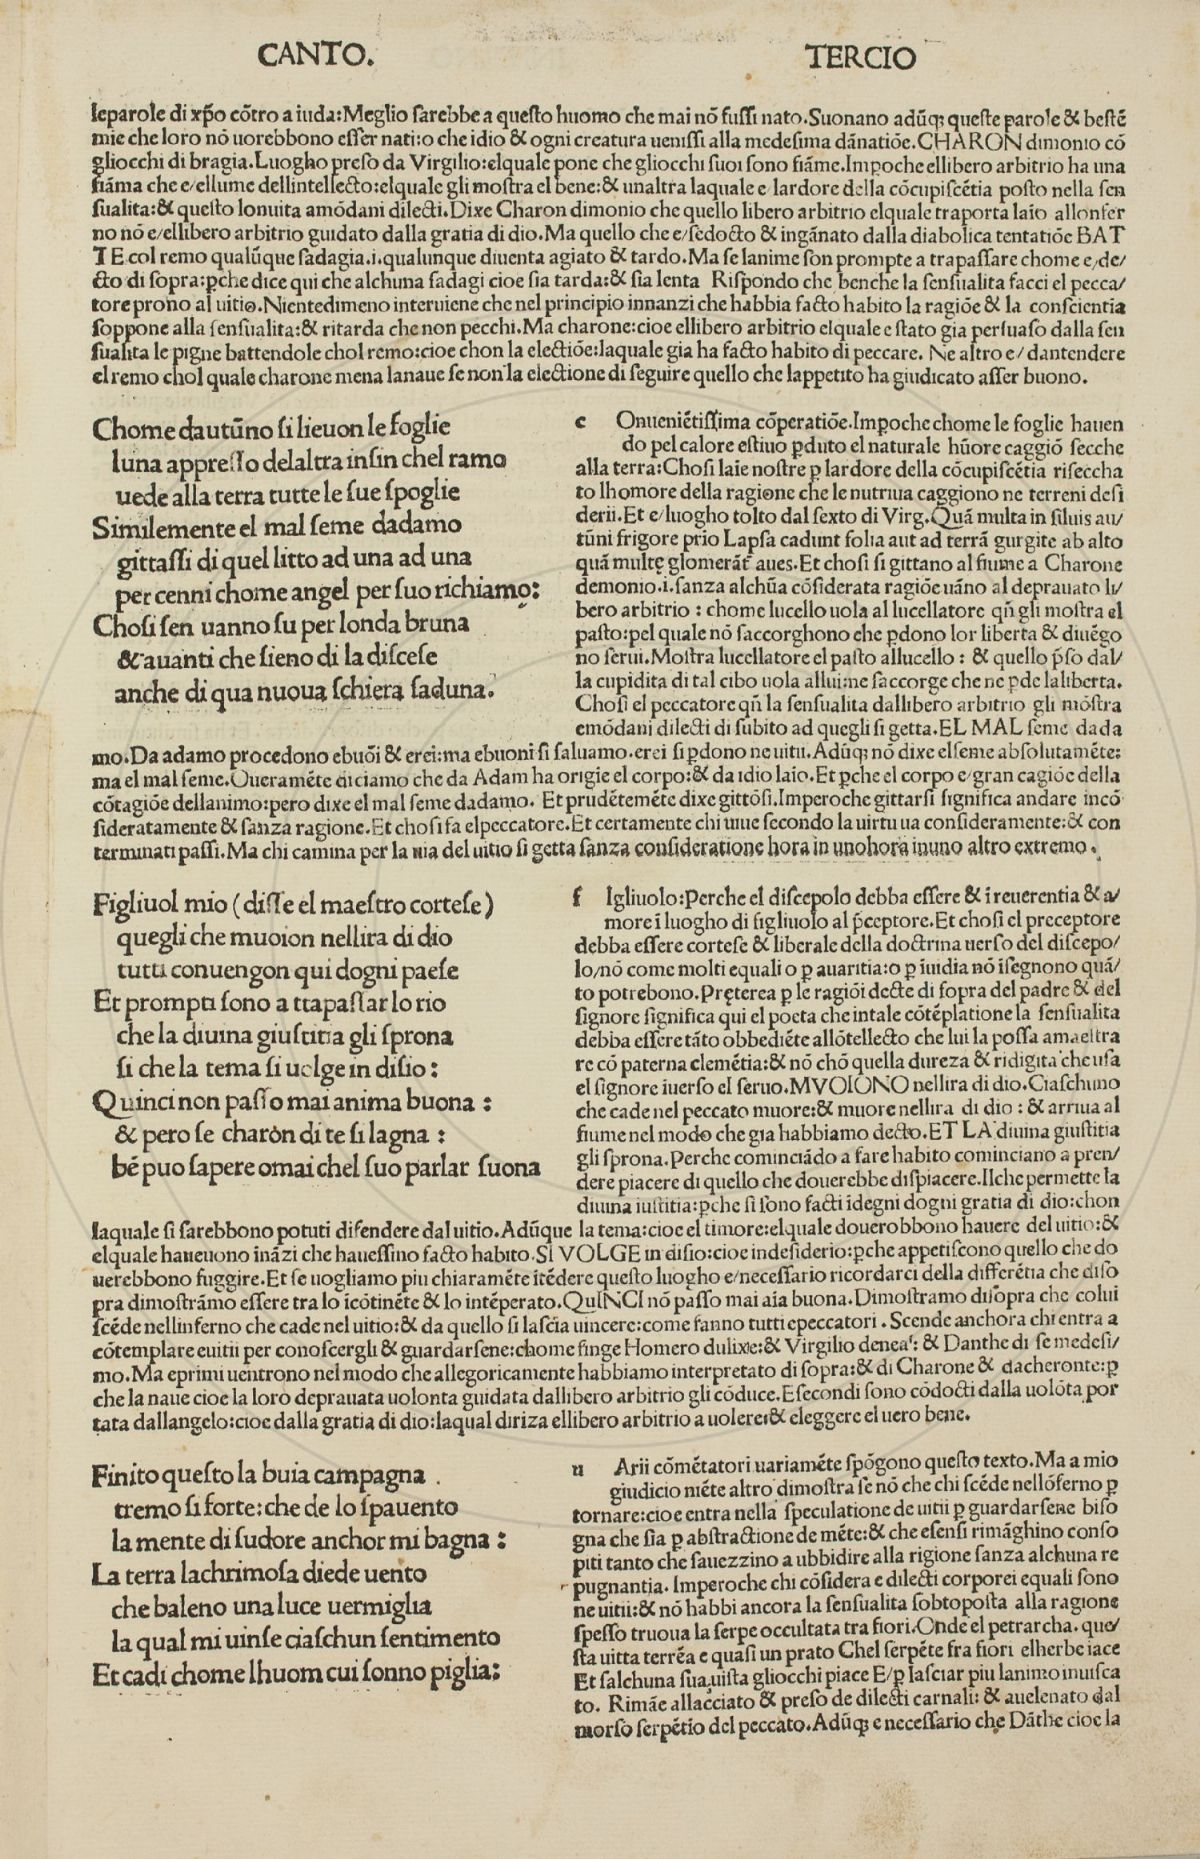 CANTO. TERCIO
leparole di xp̄o cōtro a iuda:Meglio ſarebbe a queſto huomo che mai nō fuſſi nato.Suonano adūq; queſte parole & beſtē
mie che loro nō uorebbono eſſer nati:o che idio & ogni creatura ueniſſi alla medeſima dānatiōe.CHARON dimonio cō
gliocchi di bragia.Luogho preſo da Virgilio:elquale pone che gliocchi ſuoi ſono fiāme.Impoche ellibero arbitrio ha una
fiāma che e/ellume dellintellecto:elquale gli moſtra el bene:& unaltra laquale e lardore della cōcupiſcētia poſto nella ſen
ſualita:& queſto lonuita amōdani dilecti.Dixe Charon dimonio che quello libero arbitrio elquale traporta laīo allonfer
no nō e/ellibero arbitrio guidato dalla gratia di dio.Ma quello che e/ſedocto & ingānato dalla diabolica tentatiōe BAT
TE col remo qualūque ſadagia.i.qualunque diuenta agiato & tardo.Ma ſe lanime ſon prompte a trapaſſare chome e/de/
cto di ſopra:ꝑche dice qui che alchuna ſadagi cioe ſia tarda:& ſia lenta Riſpondo che benche la ſenſualita facci el pecca/
tore prono al uitio.Nientedimeno interuiene che nel principio innanzi che habbia facto habito la ragiōe & la conſcientia
ſoppone alla ſenſualita:& ritarda che non pecchi.Ma charone:cioe ellibero arbitrio elquale e ſtato gia perſuaſo dalla ſen
ſualita le pigne battendole chol remo:cioe chon la electiōe:laquale gia ha facto habito di peccare. Ne altro e/ dantendere
el remo chol quale charone mena lanaue ſe non la electione di ſeguire quello che lappetito ha giudicato aſſer buono.
Chome dautūno ſi lieuon le foglie
luna appreſſo delaltra inſin chel ramo
uede alla terra tutte le ſue ſpoglie
Similemente el mal ſeme dadamo
gittaſſi di quel litto ad una ad una
per cenni chome angel per ſuo richiamo:
Choſi ſen uanno ſu per londa bruna
& auanti che ſieno di la diſceſe
anche di qua nuoua ſchiera ſaduna.
c Onueniētiſſima cōperatiōe.Impoche chome le foglie hauen
do pel calore eſtiuo ꝑduto el naturale hūore caggiō ſecche
alla terra:Choſi laīe noſtre ꝑ lardore della cōcupiſcētia riſeccha
to lhomore della ragione che le nutriua caggiono ne terreni deſi
derii.Et e/luogho tolto dal ſexto di Virg.Quā multa in ſiluis au/
tūni frigore prīo Lapſa cadunt folia aut ad terrā gurgite ab alto
quā multę glomerāt̄ aues.Et choſi ſi gittano al fiume a Charone
demonio.i.ſanza alchūa cōſiderata ragiōe uāno al deprauato li/
bero arbitrio : chome lucello uola al lucellatore qn̄ gli moſtra el
paſto:pel quale nō ſaccorghono che ꝑdono lor liberta & diuēgo
no ſerui.Moſtra lucellatore el paſto allucello : & quello p̄ſo dal/
la cupidita di tal cibo uola alluī:ne ſaccorge che ne ꝑde laliberta.
Choſi el peccatore qn̄ la ſenſualita dallibero arbitrio gli mōſtra
emōdani dilecti di ſubito ad quegli ſi getta.EL MAL ſeme dada
mo.Da adamo procedono ebuōi & erei:ma ebuoni ſi ſaluamo.erei ſi ꝑdono ne uitii.Adūq; nō dixe elſeme abſolutamēte:
ma el mal ſeme.Oueramēte diciamo che da Adam ha origīe el corpo:& da idio laīo.Et ꝑche el corpo e/gran cagiōe della
cōtagiōe dellanimo:pero dixe el mal ſeme dadamo. Et prudētemēte dixe gittōſi.Imperoche gittarſi ſignifica andare incō
ſideratamente & ſanza ragione.Et choſi fa elpeccatore.Et certamente chi uiue ſecondo la uirtu ua conſideramente:& con
terminati paſſi.Ma chi camina per la uia del uitio ſi getta ſanza conſideratione hora in unohora inuno altro extremo.
Figliuol mio (diſſe el maeſtro corteſe)
quegli che muoion nellira di dio
tutti conuengon qui dogni paeſe
Et prompti ſono a ttapaſſar lo rio
che la diuina giuſtitia gli ſprona
ſi che la tema ſi uolge in diſio:
Quinci non paſſo mai anima buona :
& pero ſe charòn di te ſi lagna :
bē puo ſapere omai chel ſuo parlar ſuona
f Igliuolo:Perche el diſcepolo debba eſſere & ī reuerentia & a/
more ī luogho di figliuolo al p̄ceptore.Et choſi el preceptore
debba eſſere corteſe & liberale della doctrina uerſo del diſcepo/
lo/nō come molti equali o ꝑ auaritia:o ꝑ īuidia nō īſegnono quā/
to potrebono.Pręterea ꝑ le ragiōi decte di ſopra del padre & del
ſignore ſignifica qui el poeta che intale cōtēplatione la ſenſualita
debba eſſere tāto obbediēte allōtellecto che lui la poſſa amaeltra
re cō paterna clemētia:& nō chō quella dureza & ridigita che uſa
el ſignore īuerſo el ſeruo.MVOIONO nellira di dio.Ciaſchuno
che cade nel peccato muore:& muore nellira di dio : & arriua al
fiume nel modo che gia habbiamo decto.ET LA diuina giuſtitia
gli ſprona.Perche cominciādo a fare habito cominciano a pren/
dere piacere di quello che douerebbe diſpiacere.Ilche permette la
diuina iuſtitia:ꝑche ſi ſono facti īdegni dogni gratia di dio:chon
laquale ſi ſarebbono potuti difendere dal uitio.Adūque la tema:cioe el timore:elquale douerobbono hauere del uitio:&
elquale haueuono ināzi che haueſſino facto habito.SI VOLGE in diſio:cioe indeſiderio:ꝑche appetiſcono quello che do
uerebbono fuggire.Et ſe uogliamo piu chiaramēte ītēdere queſto luogho e/neceſſario ricordarci della differētia che diſo
pra dimoſtrāmo eſſere tra lo īcōtinēte & lo intēperato.QuINCI nō paſſo mai aīa buona.Dimoſtramo diſopra che colui
ſcēde nellinferno che cade nel uitio:& da quello ſi laſcia uincere:come fanno tutti epeccatori . Scende anchora chi entra a
cōtemplare euitii per conoſcergli & guardarſene:chome finge Homero dulixe:& Virgilio denea': & Danthe di ſe medeſi/
mo.Ma eprimi uentrono nel modo che allegoricamente habbiamo interpretato di ſopra:& di Charone & dacheronte:ꝑ
che la naue cioe la loro deprauata uolonta guidata dallibero arbitrio gli cōduce.Eſecondi ſono cōdocti dalla uolōta por
tata dallangelo:cioe dalla gratia di dio:laqual diriza ellibero arbitrio a uolere:& eleggere el uero bene.
Finito queſto la buia campagna
tremo ſi forte:che de lo ſpauento
la mente di ſudore anchor mi bagna :
La terra lachrimoſa diede uento
che baleno una luce uermiglia
la qual mi uinſe ciaſchun ſentimento
Et cadi chome lhuom cui ſonno piglia:
u Arii cōmētatori uariamēte ſpōgono queſto texto.Ma a mio
giudicio niēte altro dimoſtra ſe nō che chi ſcēde nellōferno ꝑ
tornare:cioe entra nella ſpeculatione de uitii ꝑ guardarſene biſo
gna che ſia ꝑ abſtractione de mēte:& che eſenſi rimāghino conſo
piti tanto che ſauezzino a ubbidire alla rigione ſanza alchuna re
pugnantia. Imperoche chi cōſidera e dilecti corporei equali ſono
ne uitii:& nō habbi ancora la ſenſualita ſobtopoſta alla ragione
ſpeſſo truoua la ſerpe occultata tra fiori.Onde el petrarcha. que/
ſta uitta terrēa e quaſi un prato Chel ſerpēte fra fiori elherbe iace
Et ſalchuna ſua uiſta gliocchi piace E/ꝑ laſciar piu lanimo inuiſca
to. Rimāe allacciato & preſo de dilecti carnali: & auelenato dal
morſo ſerpētio del peccato.Adūq; e neceſſario che Dāthe cioe la